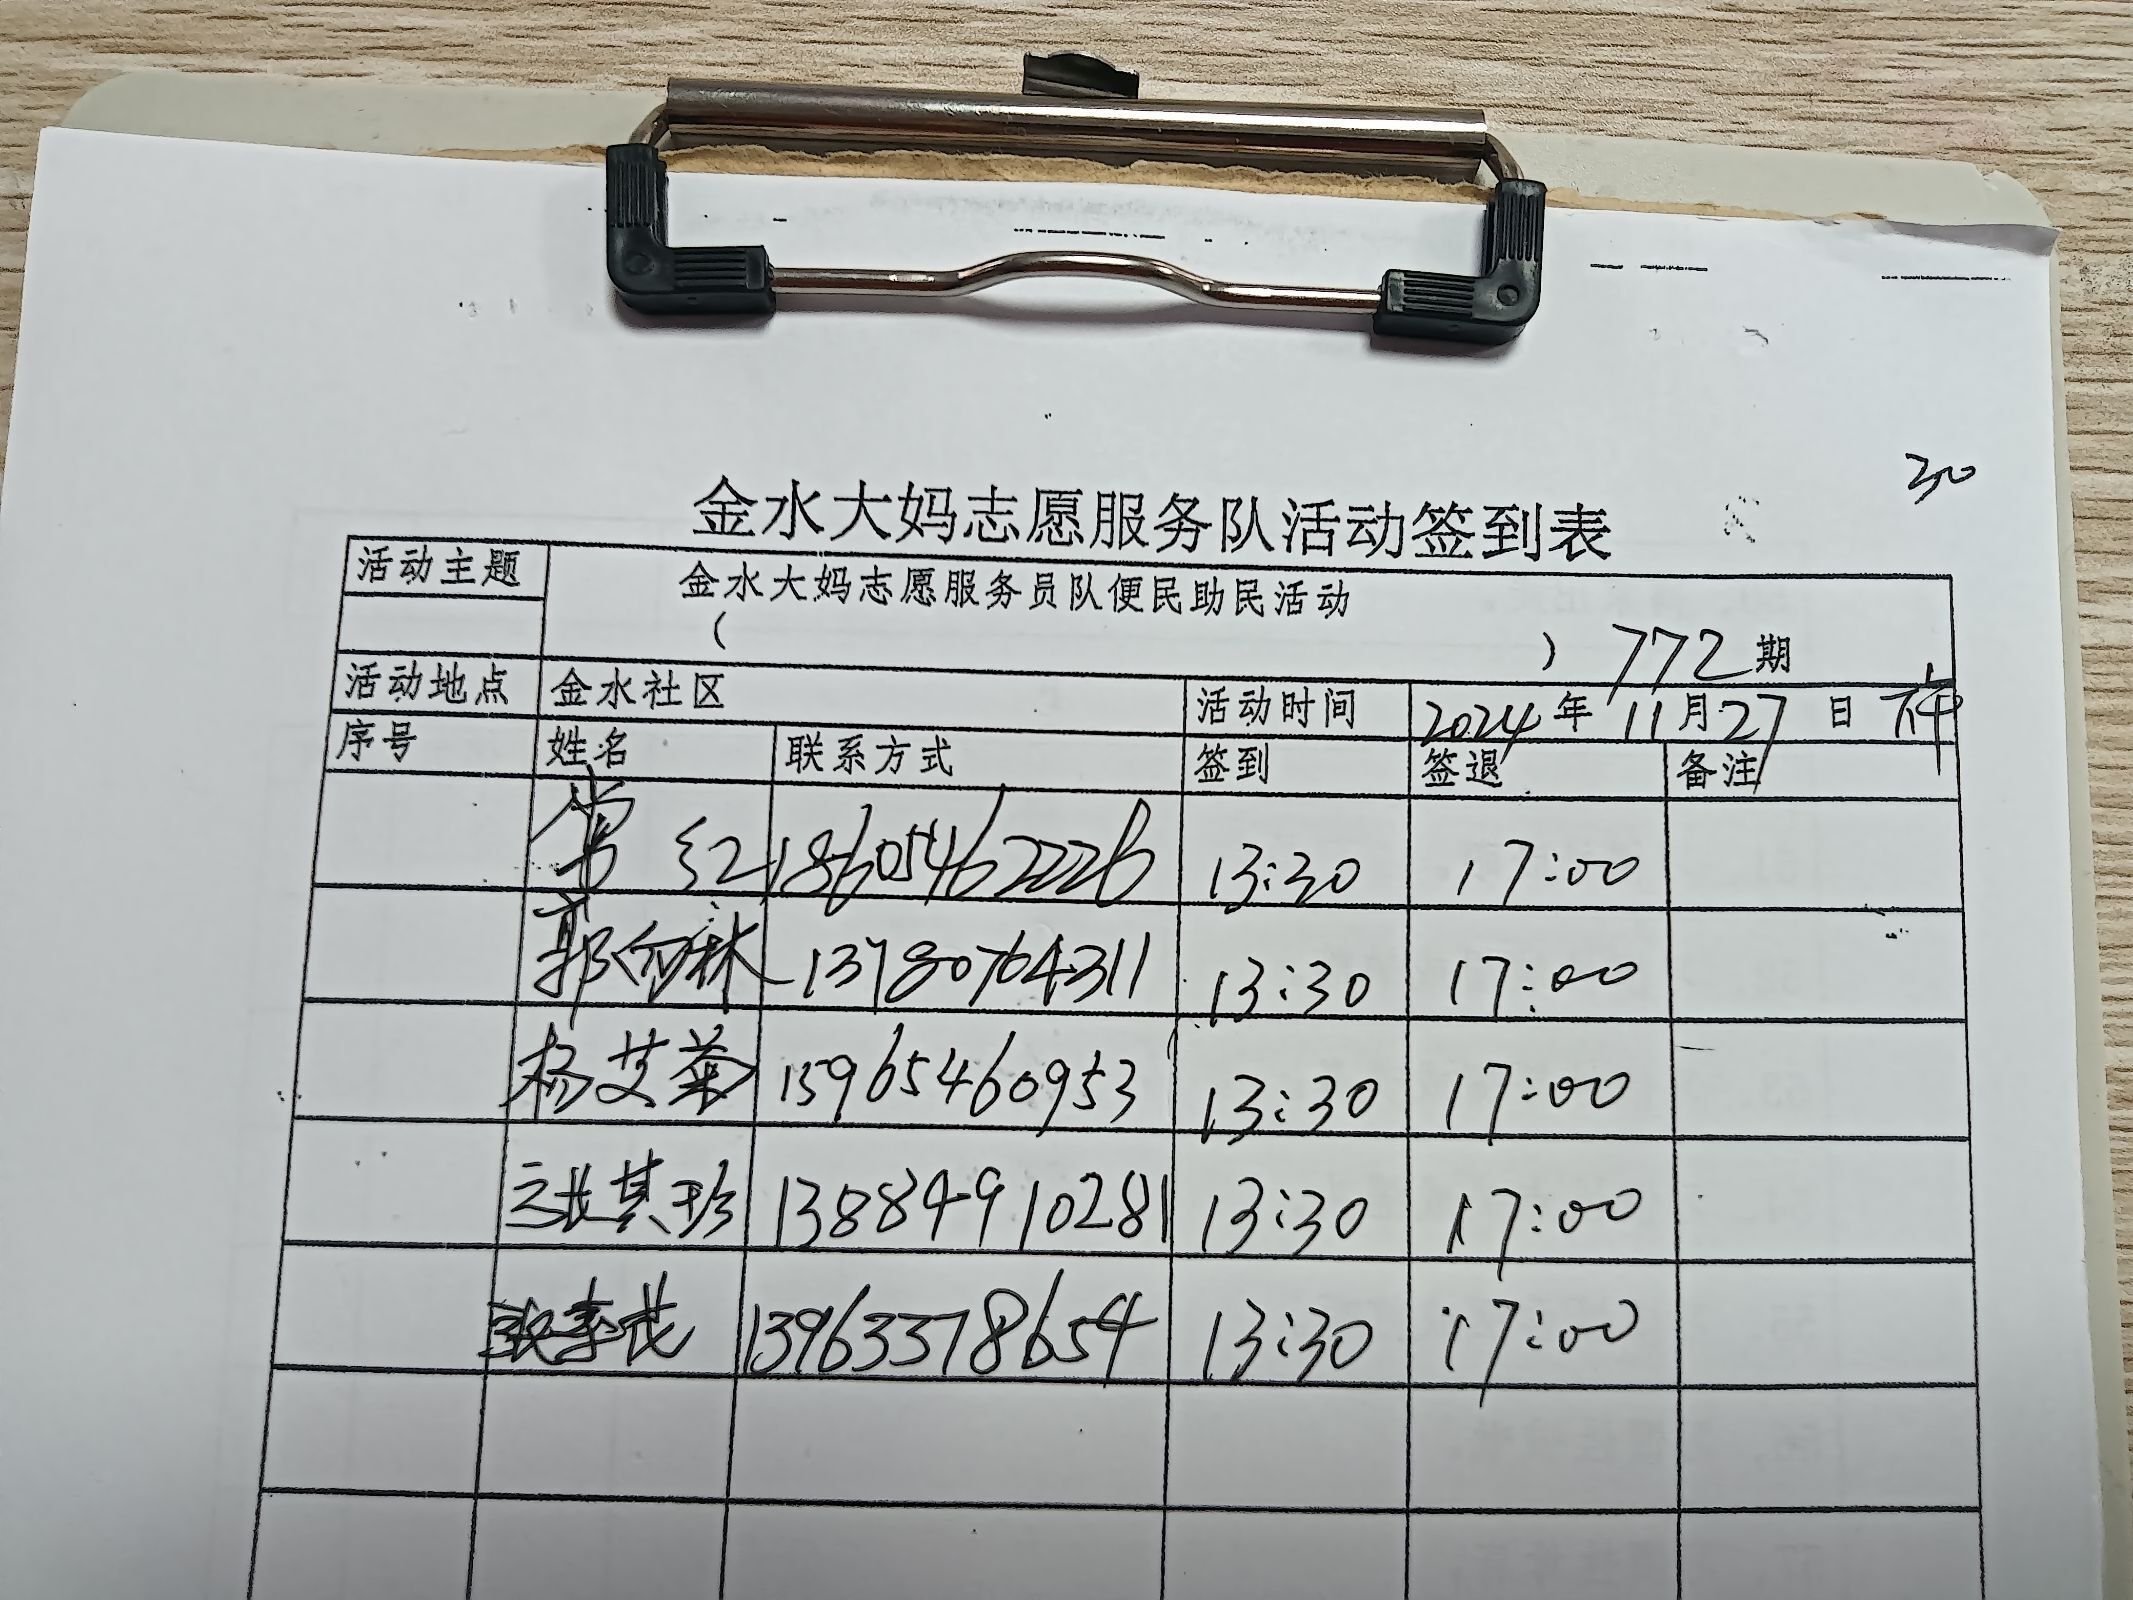 30
金水大妈志愿服务队活动签到表
活动主题 金水大妈志愿服务员队便民助民活动
( ) 772期
活动地点 金水社区 活动时间 2024年11月27日
序号 姓名 联系方式 签到 签退 备注
常红 18605462226 13:30 17:00
郭向林 13780764311 13:30 17:00
杨艾菊 15965460953 13:30 17:00
其珍 13884910281 13:30 17:00
13963378654 13:30 17:00